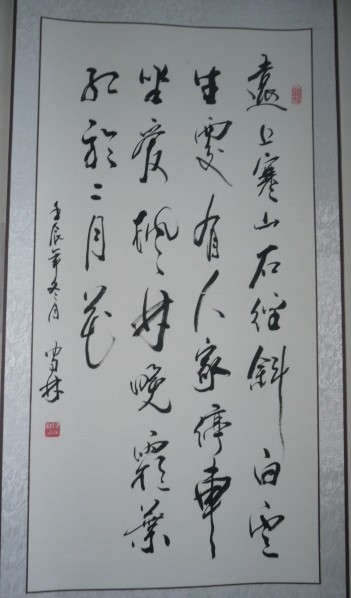 遠上寒山石徑斜白雲
生處有人家停車
坐愛楓林晚霜葉
紅於二月花
壬辰年冬月 雪林